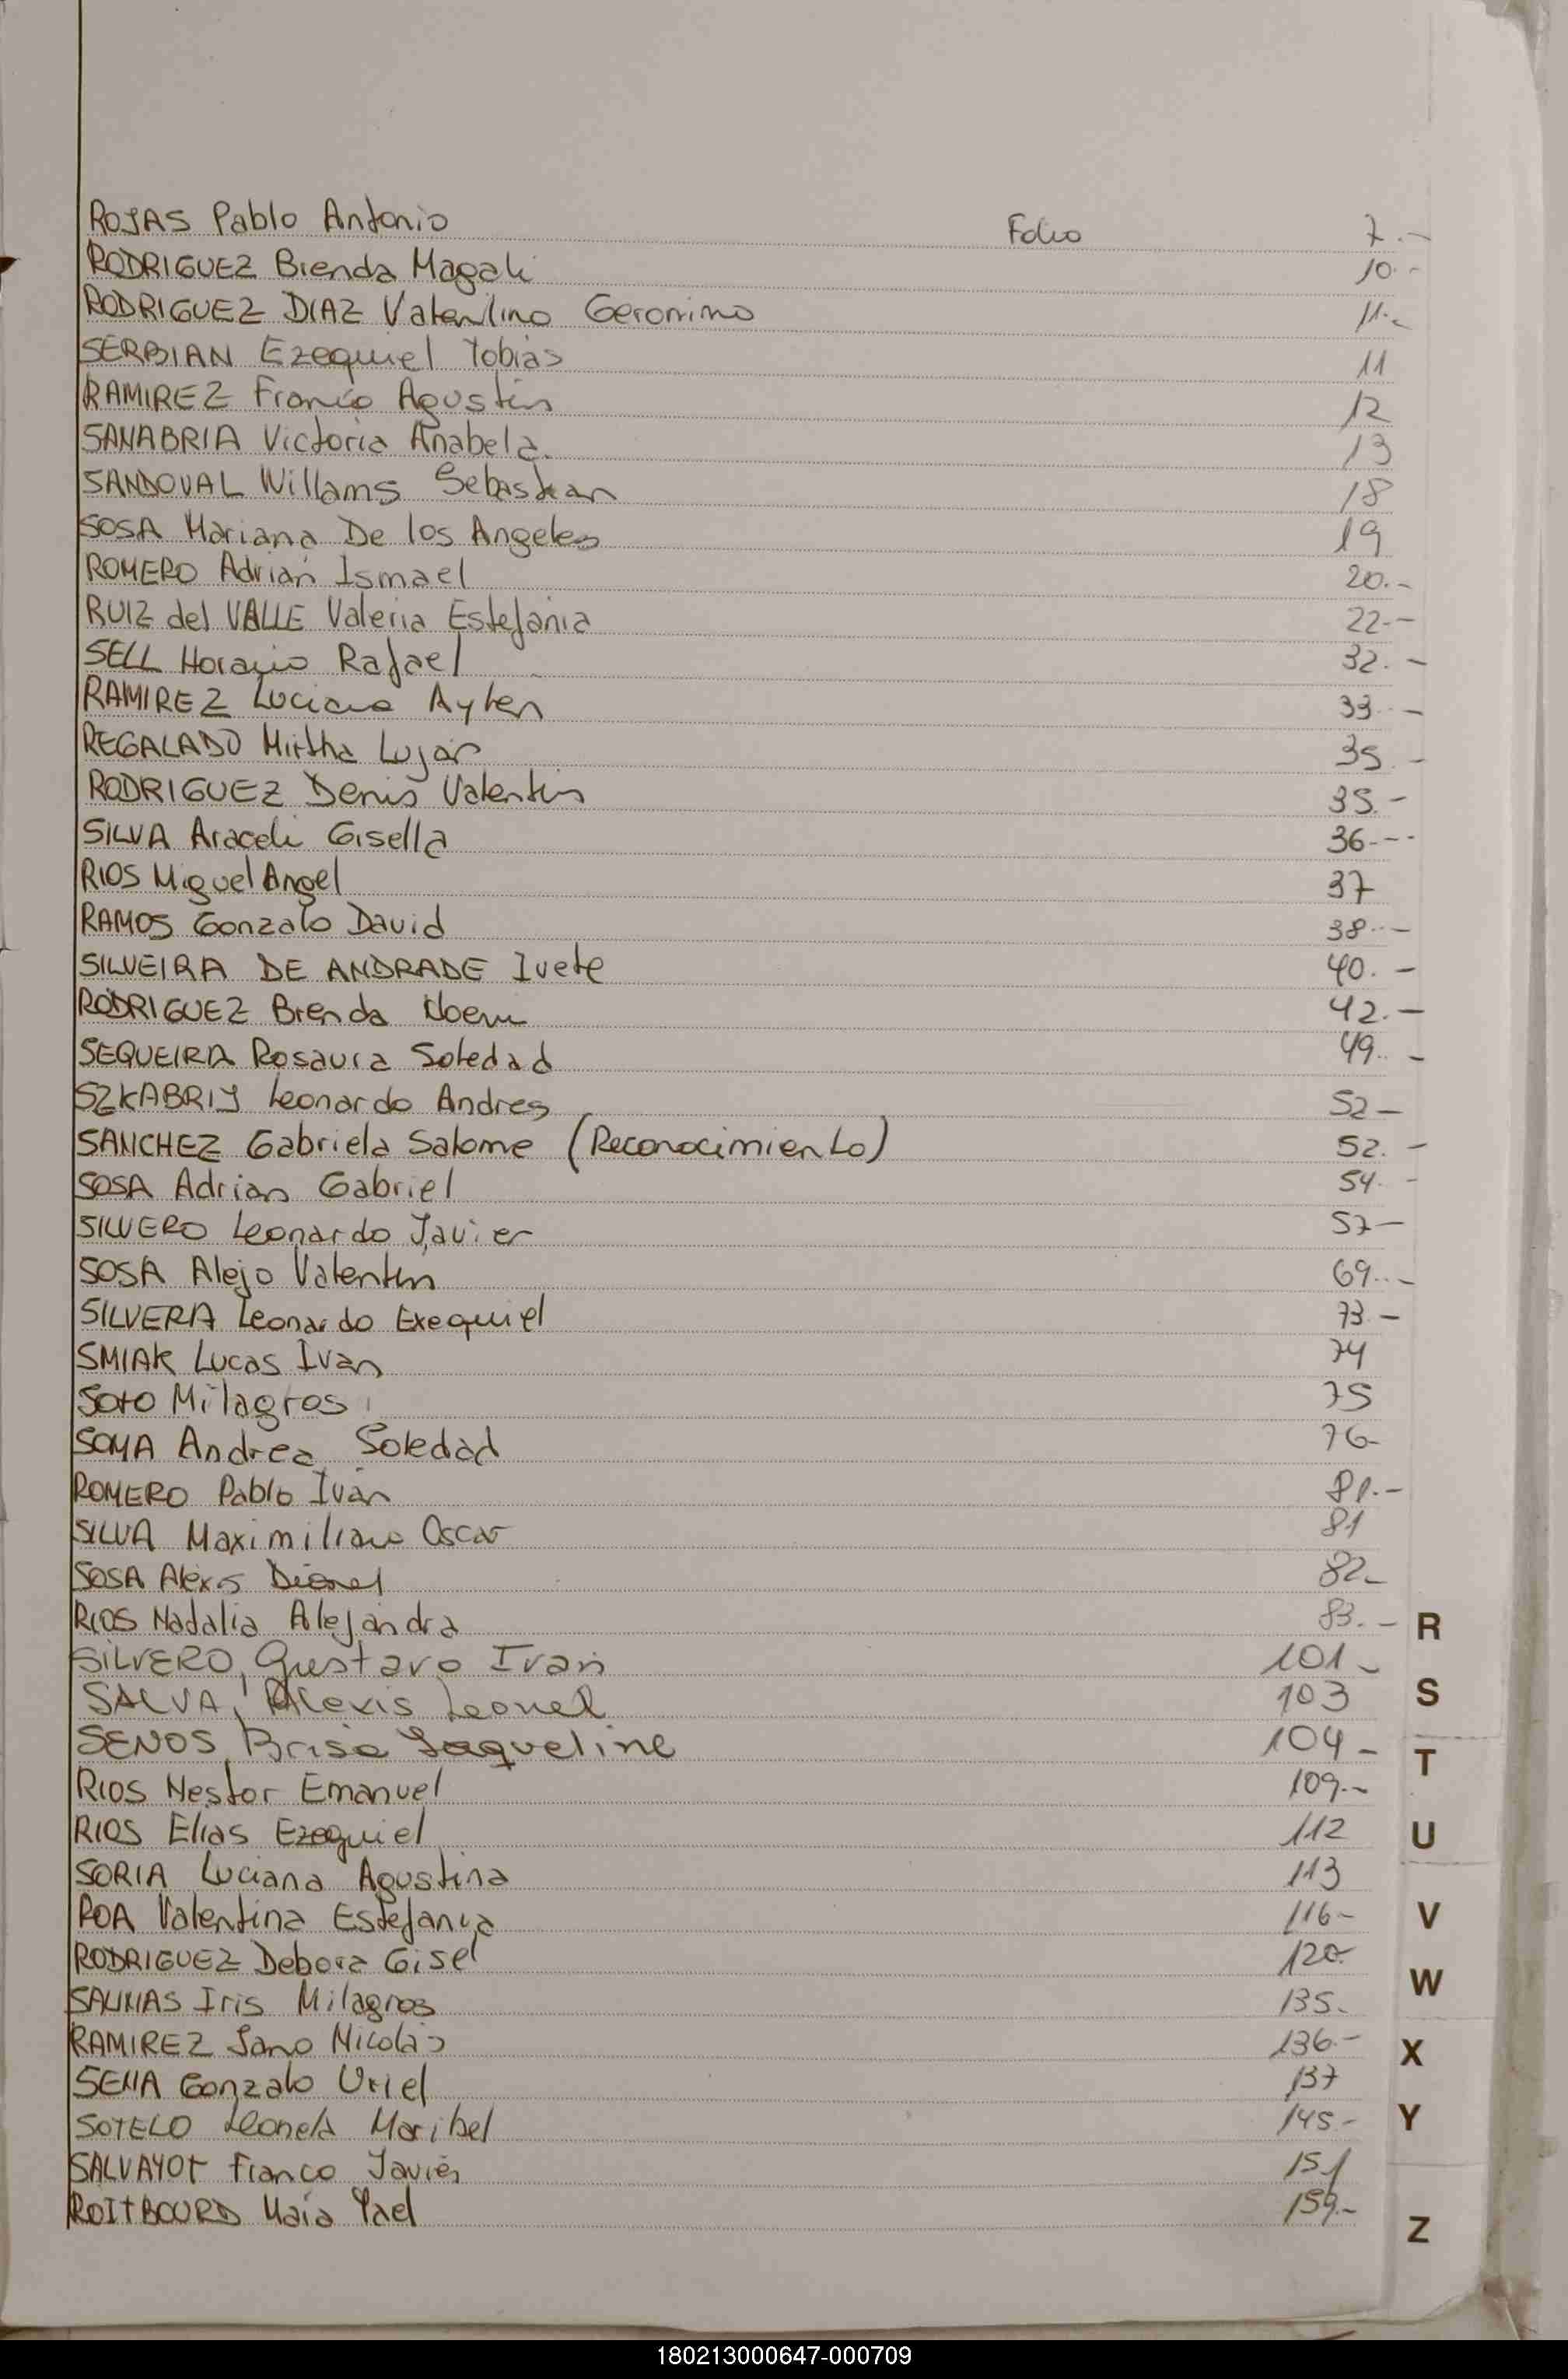 ROJAS Pablo Antonio Folio 7.-
RODRIGUEZ Brenda Magali 10.-
RODRIGUEZ DIAZ Valentino Geronimo 11.-
SERBIAN Ezequiel Tobias 11
RAMIREZ Franco Agustin 12
SANABRIA Victoria Anabela. 13
SANDOVAL Willams Sebastian 18
SOSA Mariana De los Angeles 19
ROMERO Adrian Ismael 20.-
RUIZ del VALLE Valeria Estefania 22.-
SELL Horacio Rafael 32.-
RAMIREZ Luciana Aylen 33.-
REGALADO Mirtha Lujan 35.-
RODRIGUEZ Denis Valentin 35.-
SILVA Araceli Gisella 36.--
RIOS Miguel Angel 37
RAMOS Gonzalo David 38.-
SILVEIRA DE ANDRADE Ivete 40.-
RODRIGUEZ Brenda Noemi 42.-
SEQUEIRA Rosaura Soledad 49.-
SZKABRIJ Leonardo Andres 52-
SANCHEZ Gabriela Salome (Reconocimiento) 52.-
SOSA Adrian Gabriel 54.-
SILVERO Leonardo Javier 57-
SOSA Alejo Valentin 69.-
SILVERA Leonardo Exequiel 73.-
SMIAK Lucas Ivan 74
SOTO Milagros 75
SOMA Andrea Soledad 76-
ROMERO Pablo Iván 81.-
SILVA Maximiliano Oscar 81
SOSA Alexis 82-
RIOS Nadalia Alejandra 83.- R
SILVERO, Gustavo Ivan 101-
SALVA, Alexis Leonel 103 S
SENOS, Brisa Jaqueline 104- T
RIOS Nestor Emanuel 109.-
RIOS Elias Ezequiel 112 U
SORIA Luciana Agustina 113
ROA Valentina Estefania 116- V
RODRIGUEZ Debora Gisel 120-
SALINAS Iris Milagros 135. W
RAMIREZ Jano Nicolás 136.- X
SENA Gonzalo Uriel 137
SOTELO Leonela Maribel 145.- Y
SALVAYOT Franco Javier 151
ROITBOURD Maia Yael 159.- Z
180213000647-000709